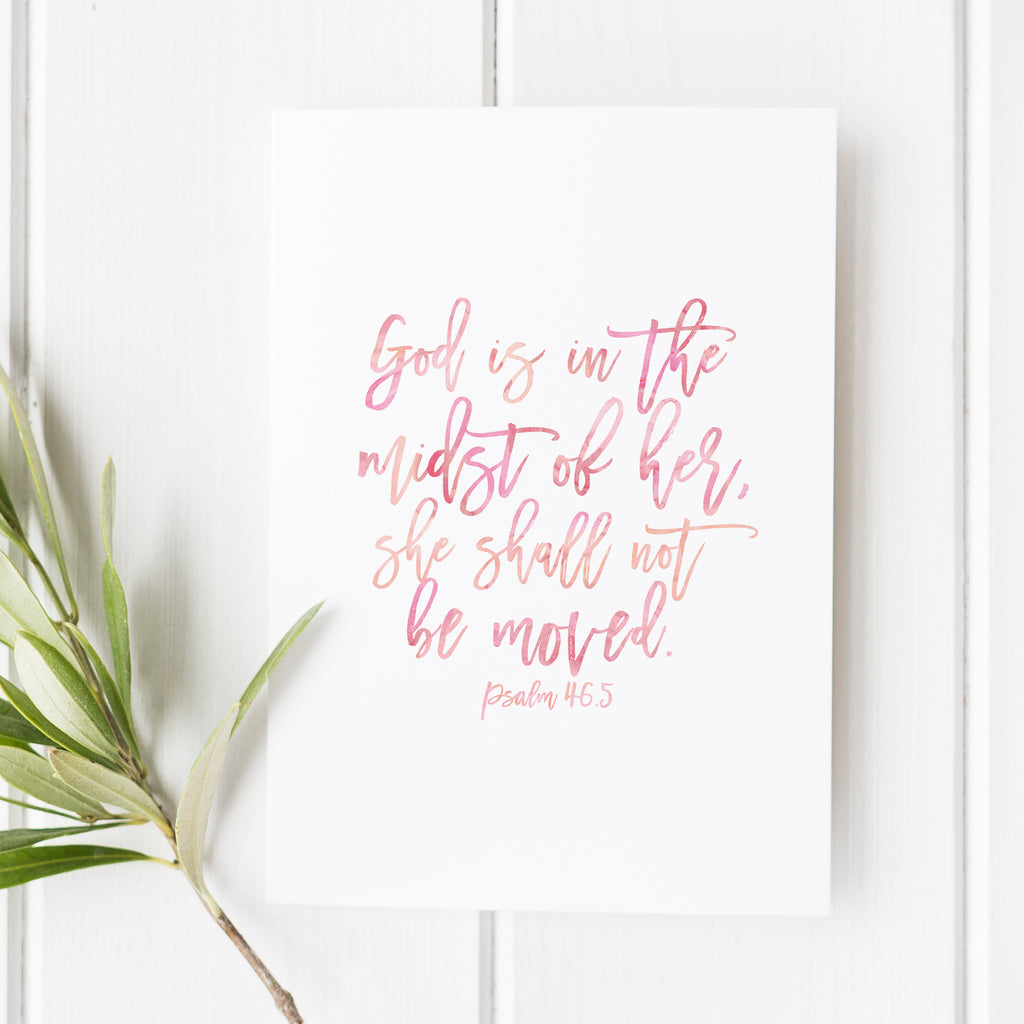 God is in the
midst of her,
she shall not
be moved.
Psalm 46.5